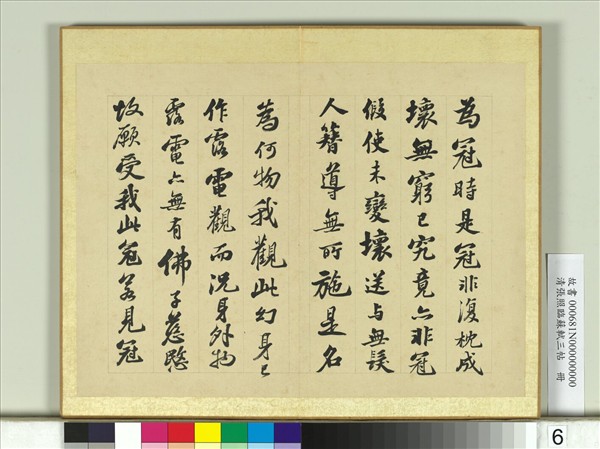 為冠時是冠非復枕成
壞無窮已究竟亦非冠
假使未變壞送与無髮
人簪導無所施是名
為何物我觀此幻身已
作露電觀而況身外物
露電亦無有佛子慈愍
故願受我此冠若見冠
故書000681N000000000
清張照臨蘇軾三帖 冊
6